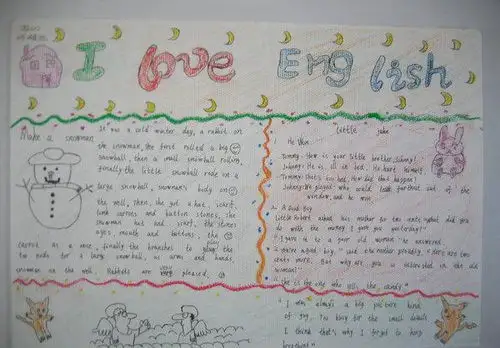 I love English
Make a snowman
It was a cold winter day, a rabbit on
the snowman, the first rolled a big
snowball, then a small snowball rolling,
finally the little snowball rode on a
large snowball, snowman's body on
the well, then, she got a hat, scarf,
carrots and button stones, the
snowman hat and scarf, the stones
eyes, mouth and buttons, the
carrot as a nose, finally the branches to
for a large snowball, as arms and hands,
snowman on the well. Rabbits are very pleased.
Little John
1. He Won
Tommy: How is your little brother, Johnny?
Johnny: He is ill in bed. He hurt himself.
Tommy: That's too bad. How did that happen?
Johnny: We played who could lean furthest out of the
window, and he won.
2. A Good Boy
Little Robert asked his mother for two cents. "What did you
do with the money I gave you yesterday?"
"I gave it to a poor old woman," he answered.
"You're a good boy," said the mother proudly. "Here are two
cents more. But why are you so interested in the old
woman?"
"She is the one who sells the candy."
"I was always a big picture kind
of guy, I'm busy for the small details
I think that's why I forgot to
breathing"